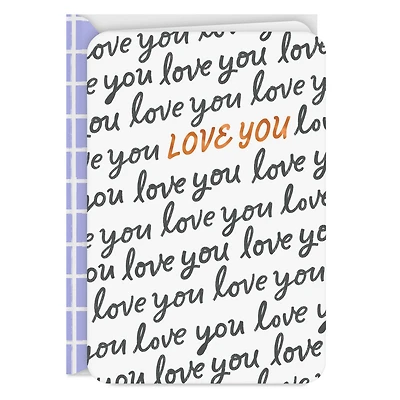 love you love you
you love you love
you love you love you
e you LOVE YOU lo
love you love you
e you love you love
you love you love y
love you love you
e you love you love
ou love you love you
love you love you
you love you love y
you love you love
love you love